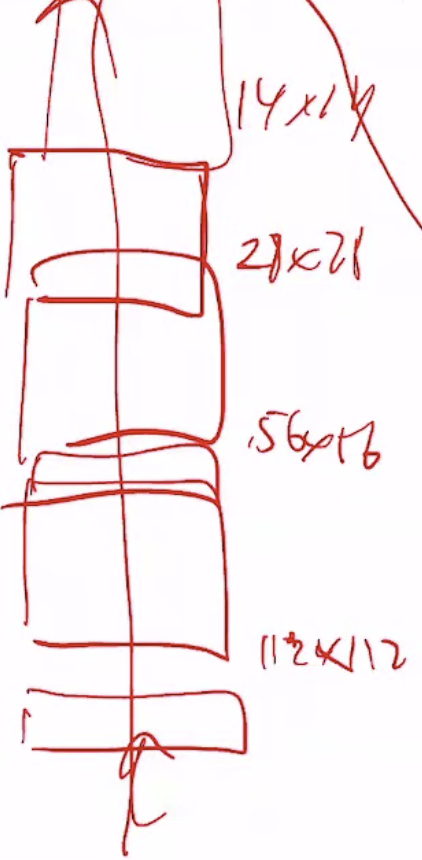 14x14
28x28
56x56
112x112